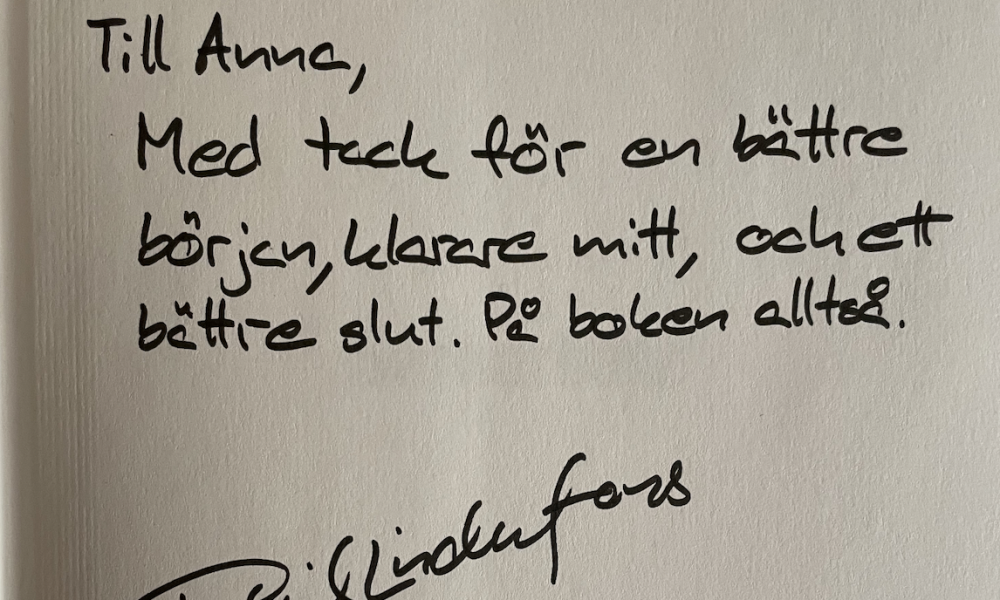 Till Anna,
Med tack för en bättre
början, klarare mitt, och ett
bättre slut. På boken alltså.
Lindenfors